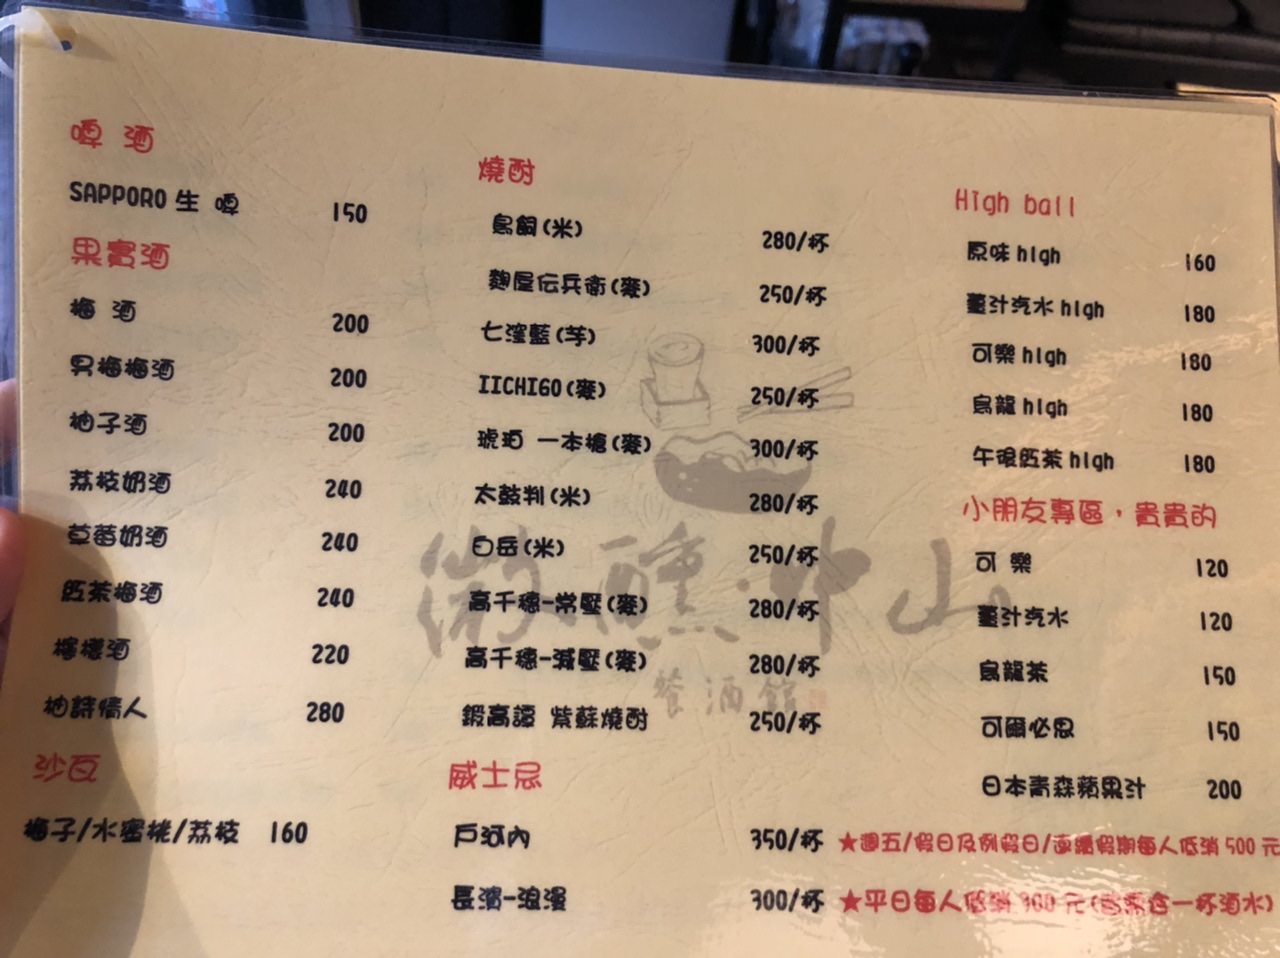 啤 酒
SAPPORO 生 啤 150
果實酒
梅 酒 200
男梅梅酒 200
柚子酒 200
荔枝奶酒 240
草莓奶酒 240
紅茶梅酒 240
檸檬酒 220
柚詩情人 280
沙瓦
梅子/水蜜桃/荔枝 160
燒酎
鳥飼(米) 280/杯
麴屋伝兵衛(麥) 250/杯
七窪藍(芋) 300/杯
IICHIGO(麥) 250/杯
琥珀 一本槍(麥) 300/杯
太鼓判(米) 280/杯
白岳(米) 250/杯
高千穗-常壓(麥) 280/杯
高千穗-減壓(麥) 280/杯
鍛高譚 紫蘇燒酎 250/杯
威士忌
戶河內 350/杯
長濱-浪漫 300/杯
High ball
原味high 160
薑汁汽水high 180
可樂high 180
烏龍high 180
午後紅茶high 180
小朋友專區，貴貴的
可 樂 120
薑汁汽水 120
烏龍茶 150
可爾必思 150
日本青森蘋果汁 200
★週五/假日及例假日/連續假期每人低消 500 元
★平日每人低消 300 元(含一杯酒水)
微醺·中山
餐酒館